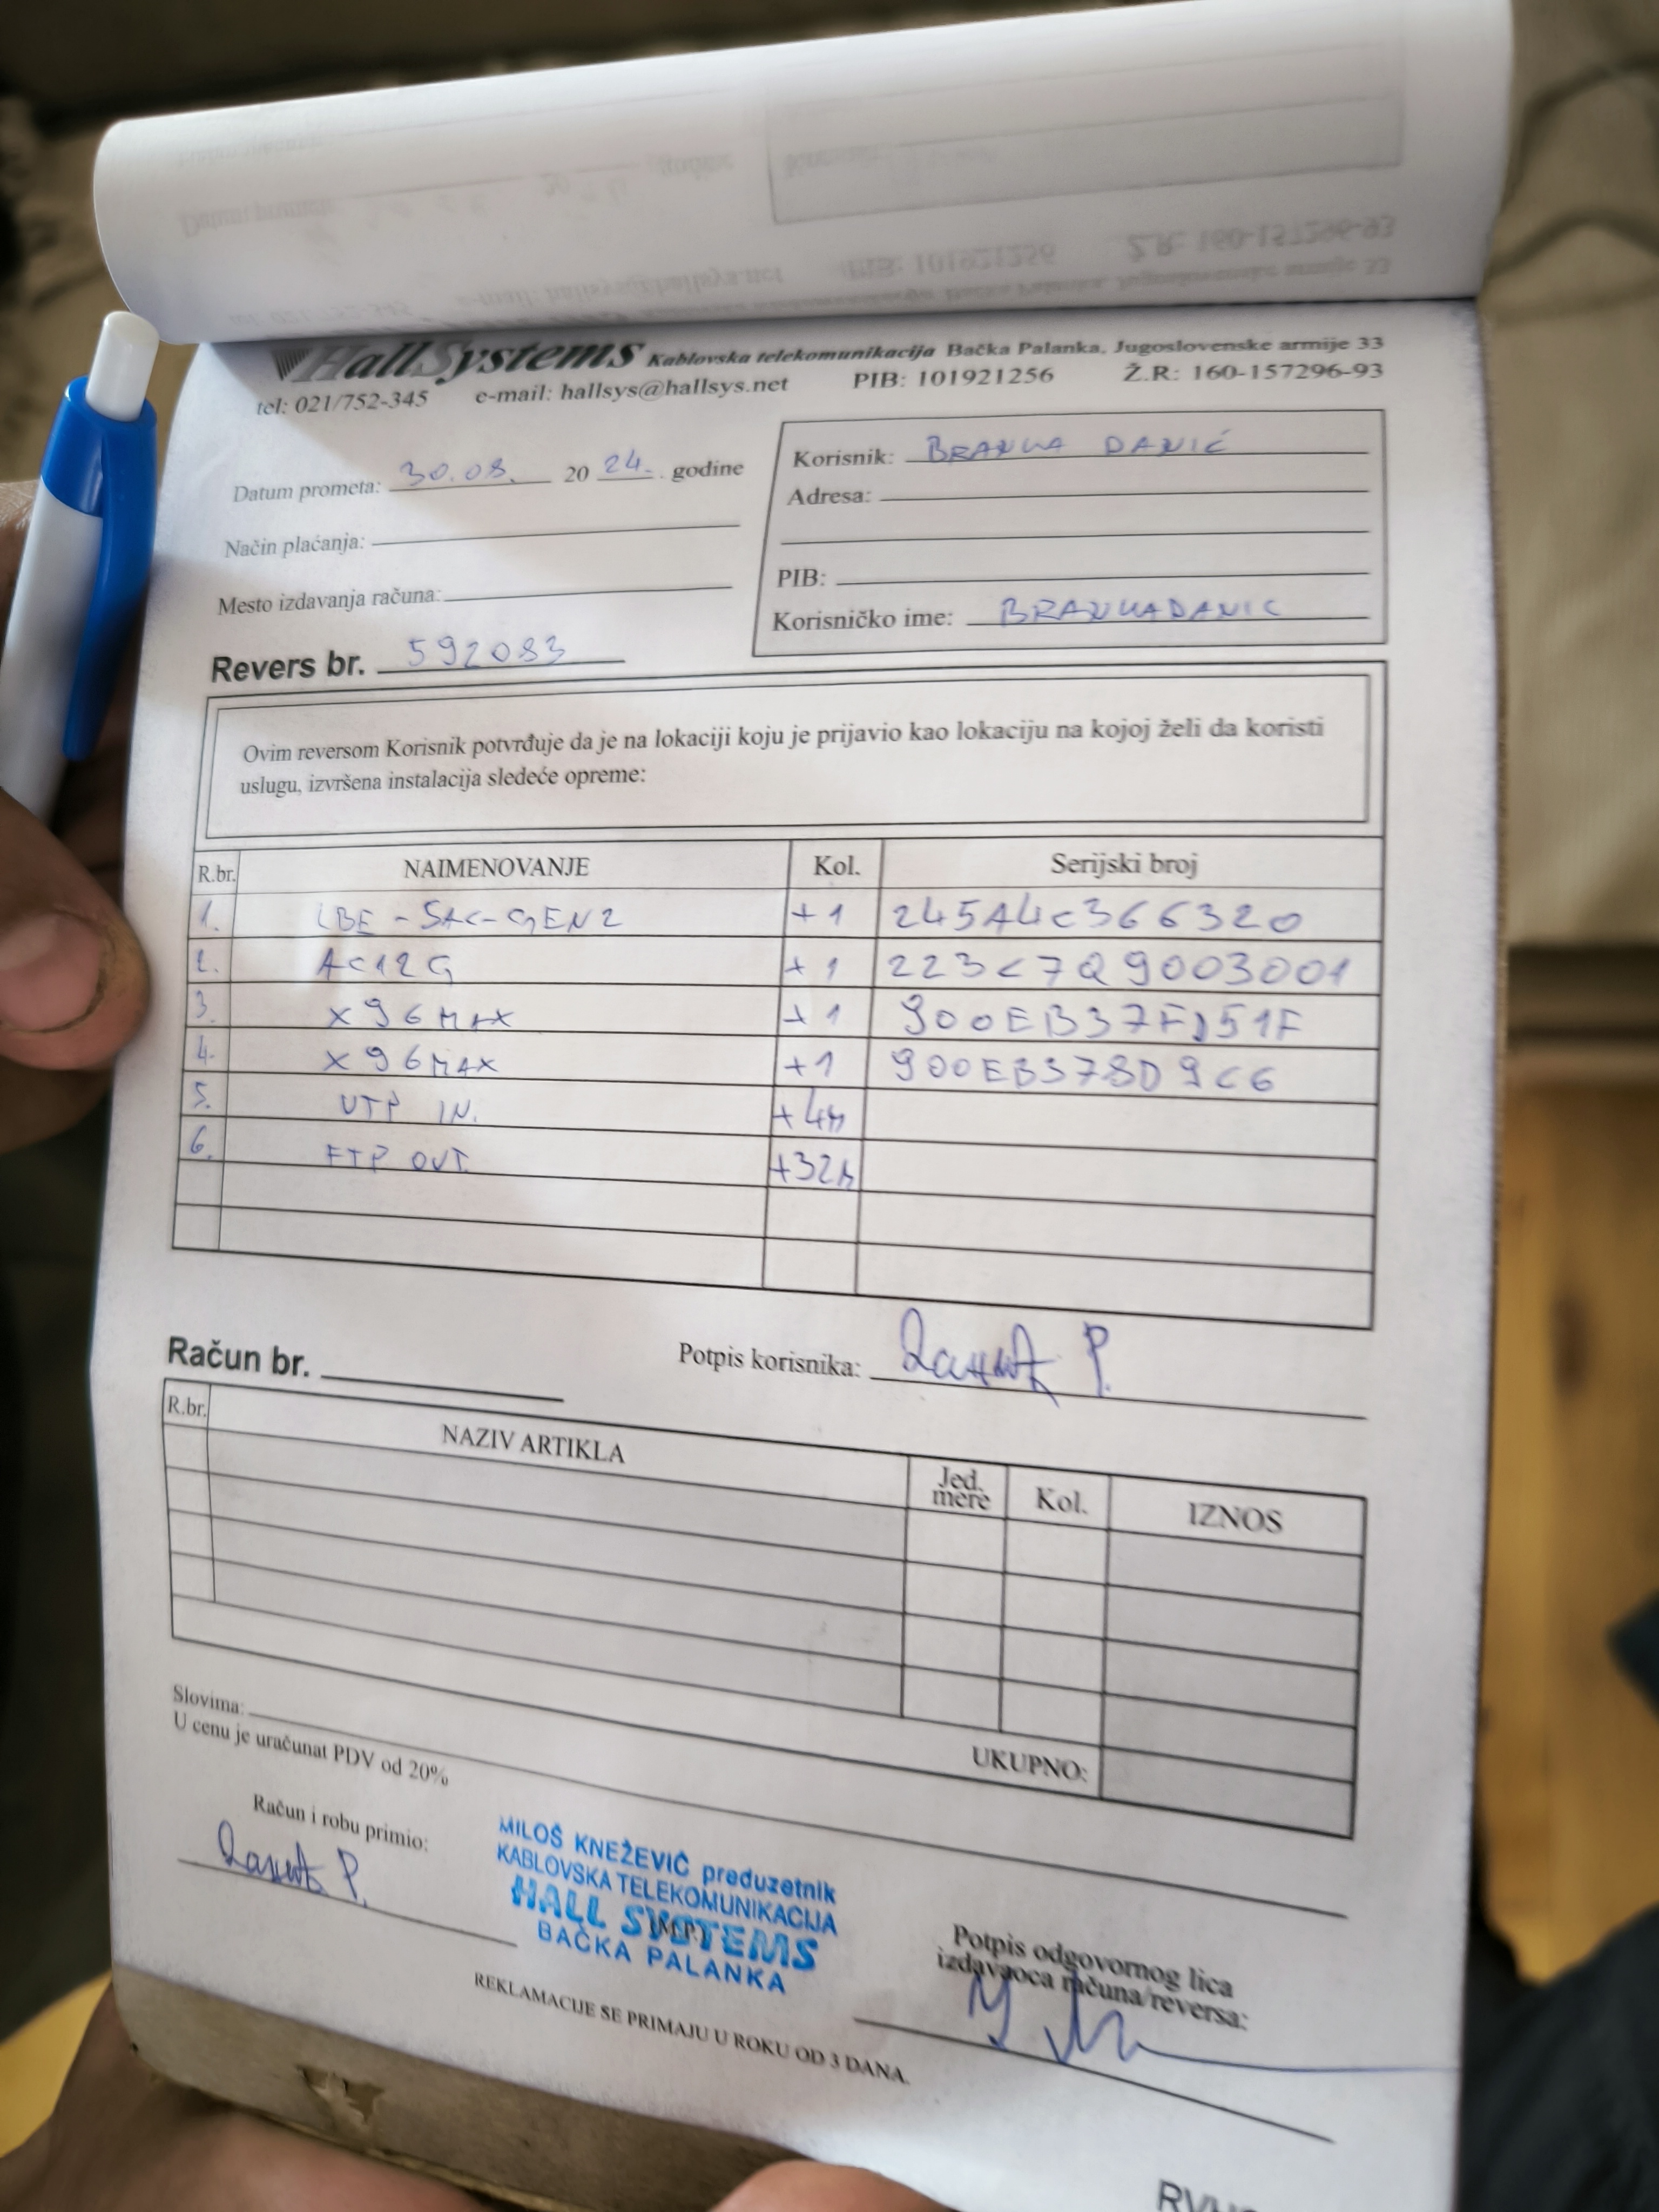 HallSystems Kablovska telekomunikacija Bačka Palanka, Jugoslovenske armije 33
tel: 021/752-345 e-mail: hallsys@hallsys.net PIB: 101921256 Ž.R: 160-157296-93
Datum prometa: 30.08. 20 24. godine
Način plaćanja:
Mesto izdavanja računa:
Korisnik: BRANKA DANIĆ
Adresa:
PIB:
Korisničko ime: BRANKADANIC
Revers br. 592083
Ovim reversom Korisnik potvrđuje da je na lokaciji koju je prijavio kao lokaciju na kojoj želi da koristi
uslugu, izvršena instalacija sledeće opreme:
R.br. NAIMENOVANJE Kol. Serijski broj
1. LBE-5AC-GEN2 +1 245A4C366320
2. AC12G +1 223C7Q9003001
3. X96MAX +1
4. X96MAX +1 900EB378D9C6
5. UTP IN. +4m
6. FTP OUT. +32m
Potpis korisnika:
Račun br.
R.br. NAZIV ARTIKLA Jed. mere Kol. IZNOS
UKUPNO:
Slovima:
U cenu je uračunat PDV od 20%
Račun i robu primio:
MILOŠ KNEŽEVIĆ preduzetnik
KABLOVSKA TELEKOMUNIKACIJA
HALL SYSTEMS
BAČKA PALANKA
(M.P.)
Potpis odgovornog lica
izdavaoca računa/reversa:
REKLAMACIJE SE PRIMAJU U ROKU OD 3 DANA.